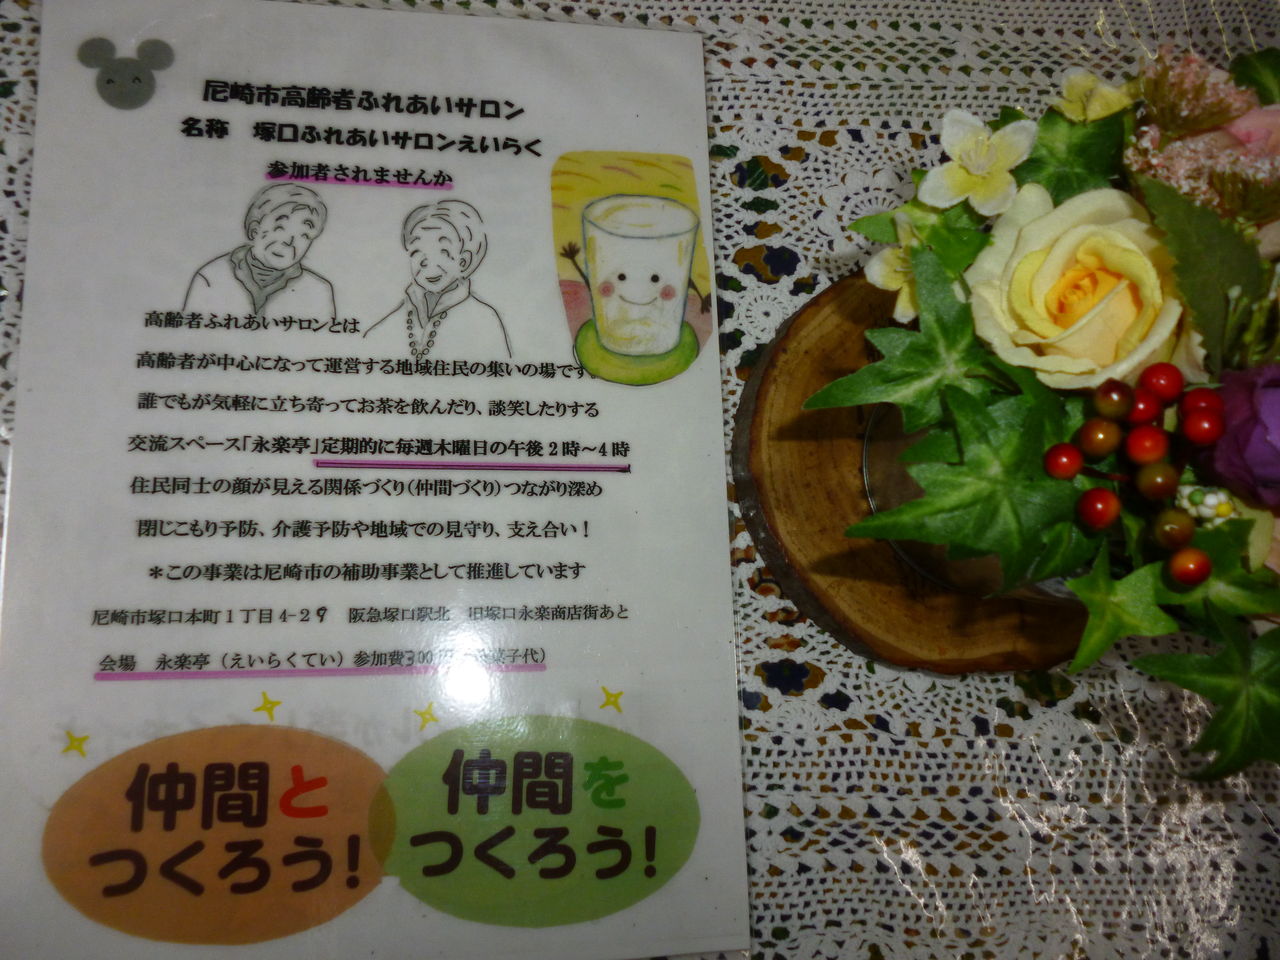 尼崎市高齢者ふれあいサロン
名称　塚口ふれあいサロンえいらく
参加者されませんか
高齢者ふれあいサロンとは
高齢者が中心になって運営する地域住民の集いの場です。
誰でもが気軽に立ち寄ってお茶を飲んだり、談笑したりする
交流スペース「永楽亭」定期的に毎週木曜日の午後２時～４時
住民同士の顔が見える関係づくり（仲間づくり）つながり深め
閉じこもり予防、介護予防や地域での見守り、支え合い！
＊この事業は尼崎市の補助事業として推進しています
尼崎市塚口本町１丁目4-29　阪急塚口駅北　旧塚口永楽商店街あと
会場　永楽亭（えいらくてい）参加費300円 菓子代）
仲間と
つくろう！
仲間を
つくろう！